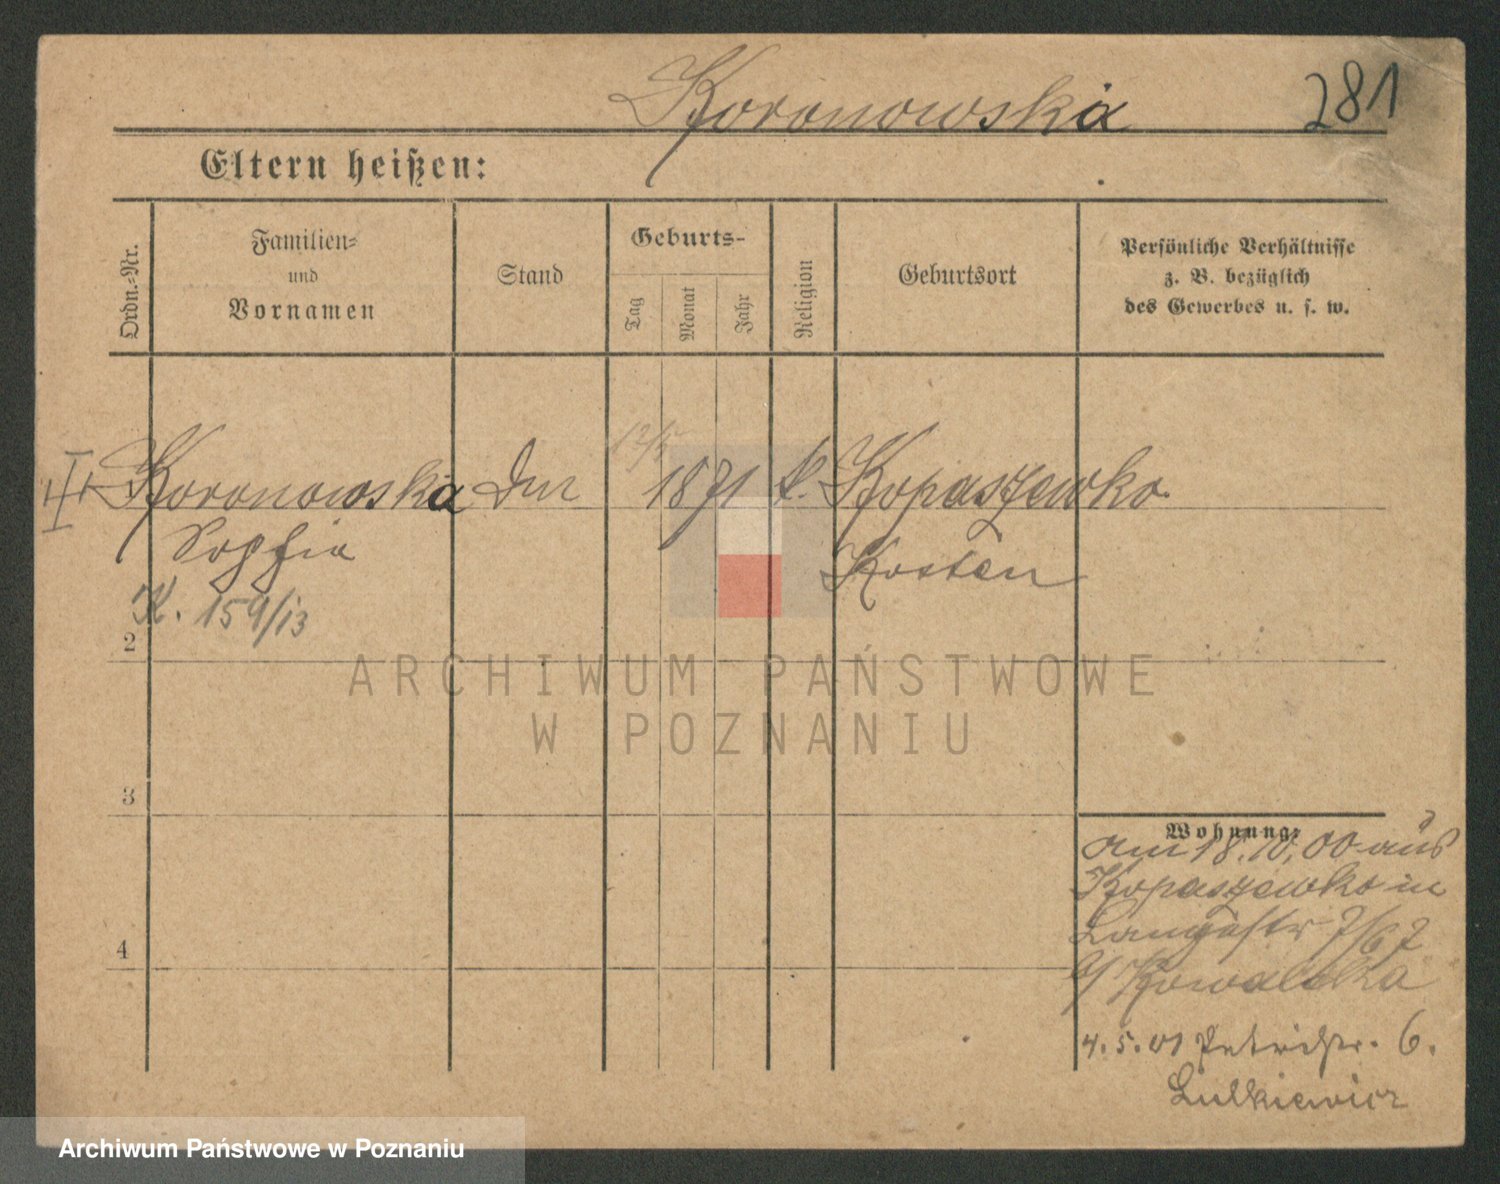 Koronowska
281
Eltern heißen:
Ordn.-Nr.
Familien-
und
Vornamen
Stand
Geburts-
Tag
Monat
Jahr
Religion
Geburtsort
Persönliche Verhältnisse
z. B. bezüglich
des Gewerbes u. s. w.
Koronowska
1871 k. Kopaszewko
Sophia
Kosten
K. 159/13
2
3
4
ARCHIWUM PAŃSTWOWE
W POZNANIU
Wohnung:
am 18.10.00 aus
Kopaszewko in
Langestr 7/67
b/ Kowalska
4.5.01 Petristr. 6.
Archiwum Państwowe w Poznaniu